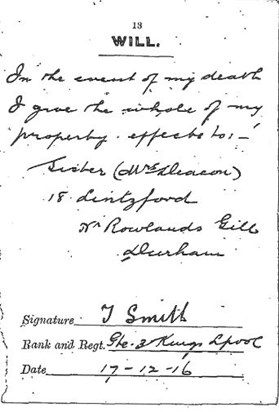 13
WILL.
In the event of my death
I give the whole of my
property. effects to:-
Sister (Mrs Deacon)
18. Lintzford
Nr Rowlands Gill
Durham
Signature T Smith
Rank and Regt. Pte. 2 Kings Lpool
Date 17-12-16